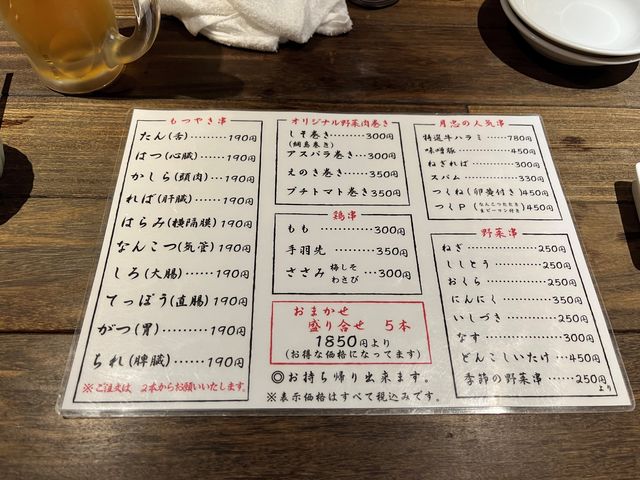 もつやき串
たん(舌)………190円
はつ(心臓)………190円
かしら(頭肉)……190円
ればー(肝臓)……190円
はらみ(横隔膜)190円
なんこつ(気管)…190円
しろ(大腸)………190円
てっぽう(直腸)190円
がつ(胃)…………190円
ちれ(脾臓)………190円
※ご注文は 2本からお願いいたします。
オリジナル野菜肉巻き
しそ巻き…………300円
アスパラ巻き……300円
えのき巻き………350円
プチトマト巻き350円
鶏串
もも……………300円
手羽先…………350円
ささみ 梅しそ わさび …300円
おまかせ
盛り合せ 5本
1850円より
(お得な価格になってます)
◎お持ち帰り出来ます。
※表示価格はすべて税込みです。
月忠の人気串
特選牛ハラミ……780円
味噌豚……………450円
ねぎれば…………300円
スパム……………330円
つくね(卵黄付き)450円
つくP 450円
野菜串
ねぎ………………250円
ししとう…………250円
おくら……………250円
にんにく…………350円
いしづき…………250円
なす………………300円
どんこしいたけ…450円
季節の野菜串……250円より